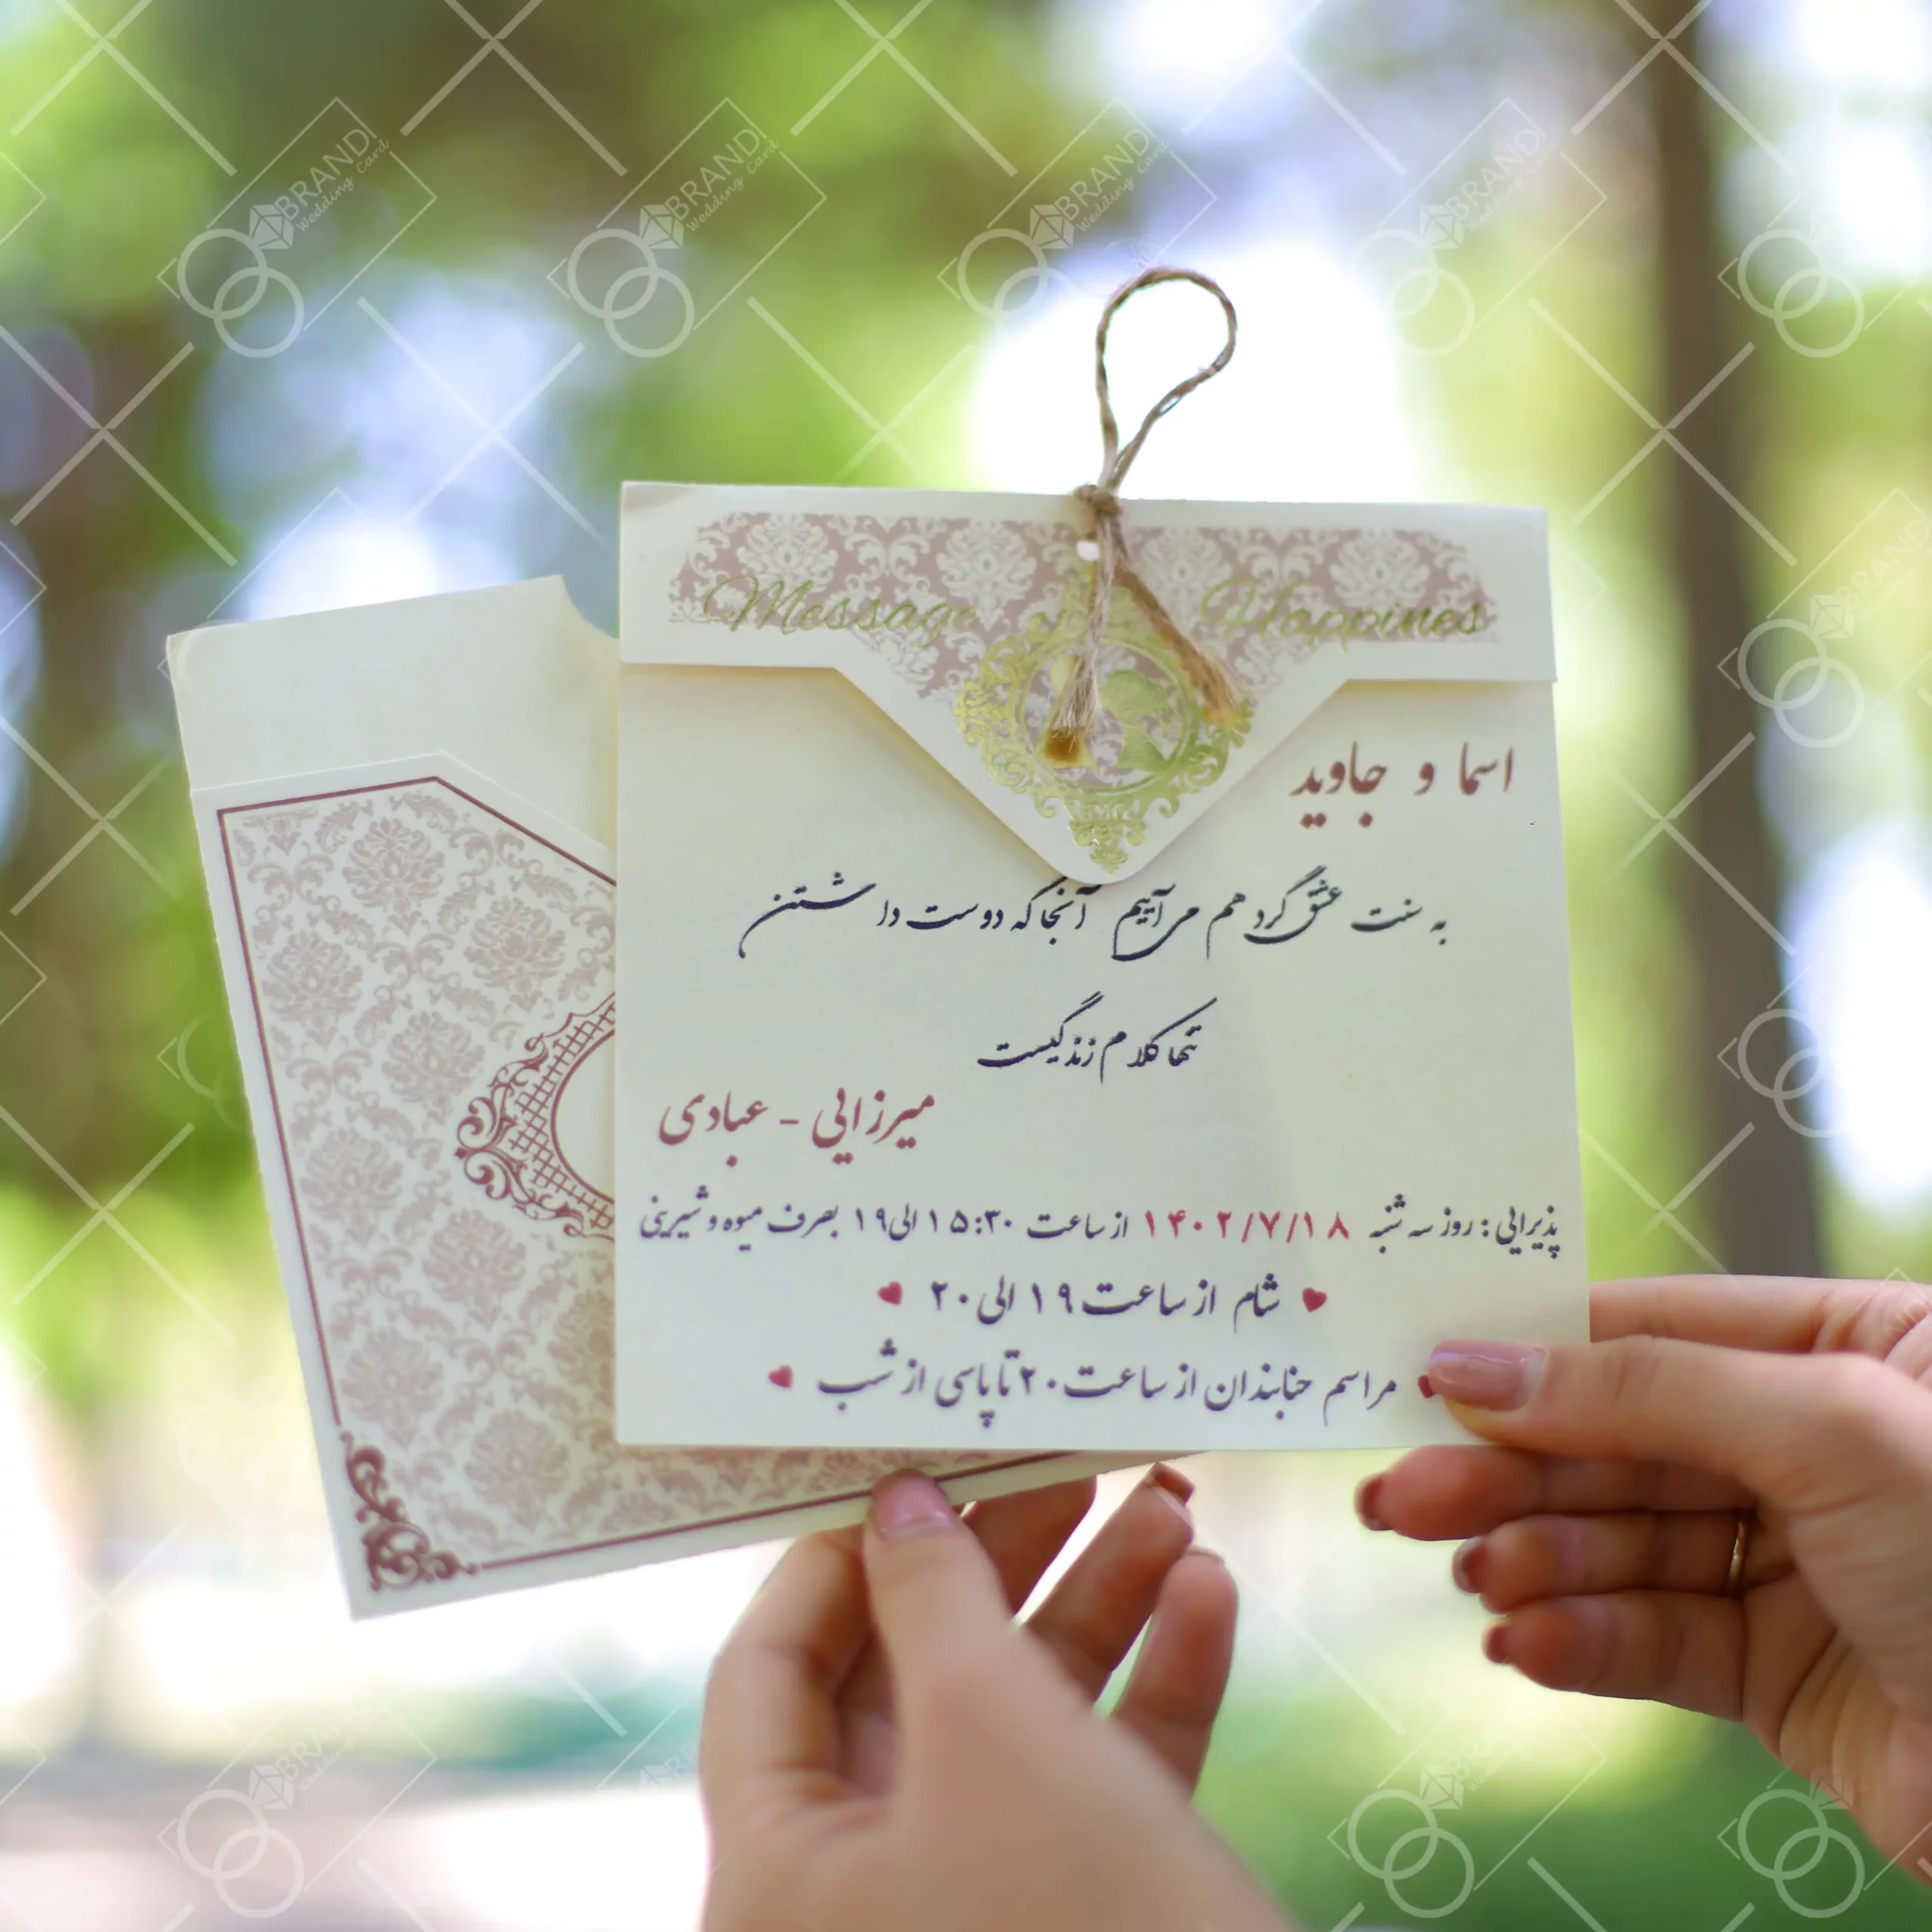 Message Happines
اسما و جاوید
به سنت عشق گرد هم می آییم آنجا که دوست داشتن
تنها کلام زندگیست
میرزایی - عبادی
پذیرایی : روز سه شنبه ۱۴۰۲/۷/۱۸ از ساعت ۱۵:۳۰ الی ۱۹ بصرف میوه و شیرینی
شام از ساعت ۱۹ الی ۲۰
مراسم حنابندان از ساعت ۲۰ تا پاسی از شب
BRAND
Wedding Card